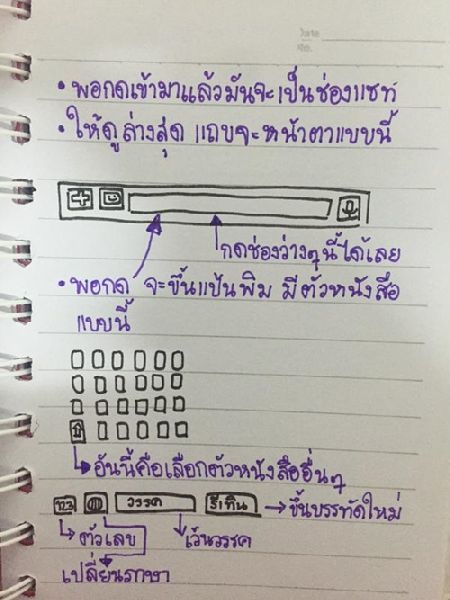 Date
No.
• พอกดเข้ามาแล้วมันจะเป็นช่องแชท
• ให้ดูล่างสุด แถบจะหน้าตาแบบนี้
กดช่องว่างๆนี้ได้เลย
• พอกด จะขึ้นแป้นพิม มีตัวหนังสือ
แบบนี้
อันนี้คือเลือกตัวหนังสืออื่นๆ
123 วรรค รีเทิน ขึ้นบรรทัดใหม่
ตัวเลข เว้นวรรค
เปลี่ยนภาษา